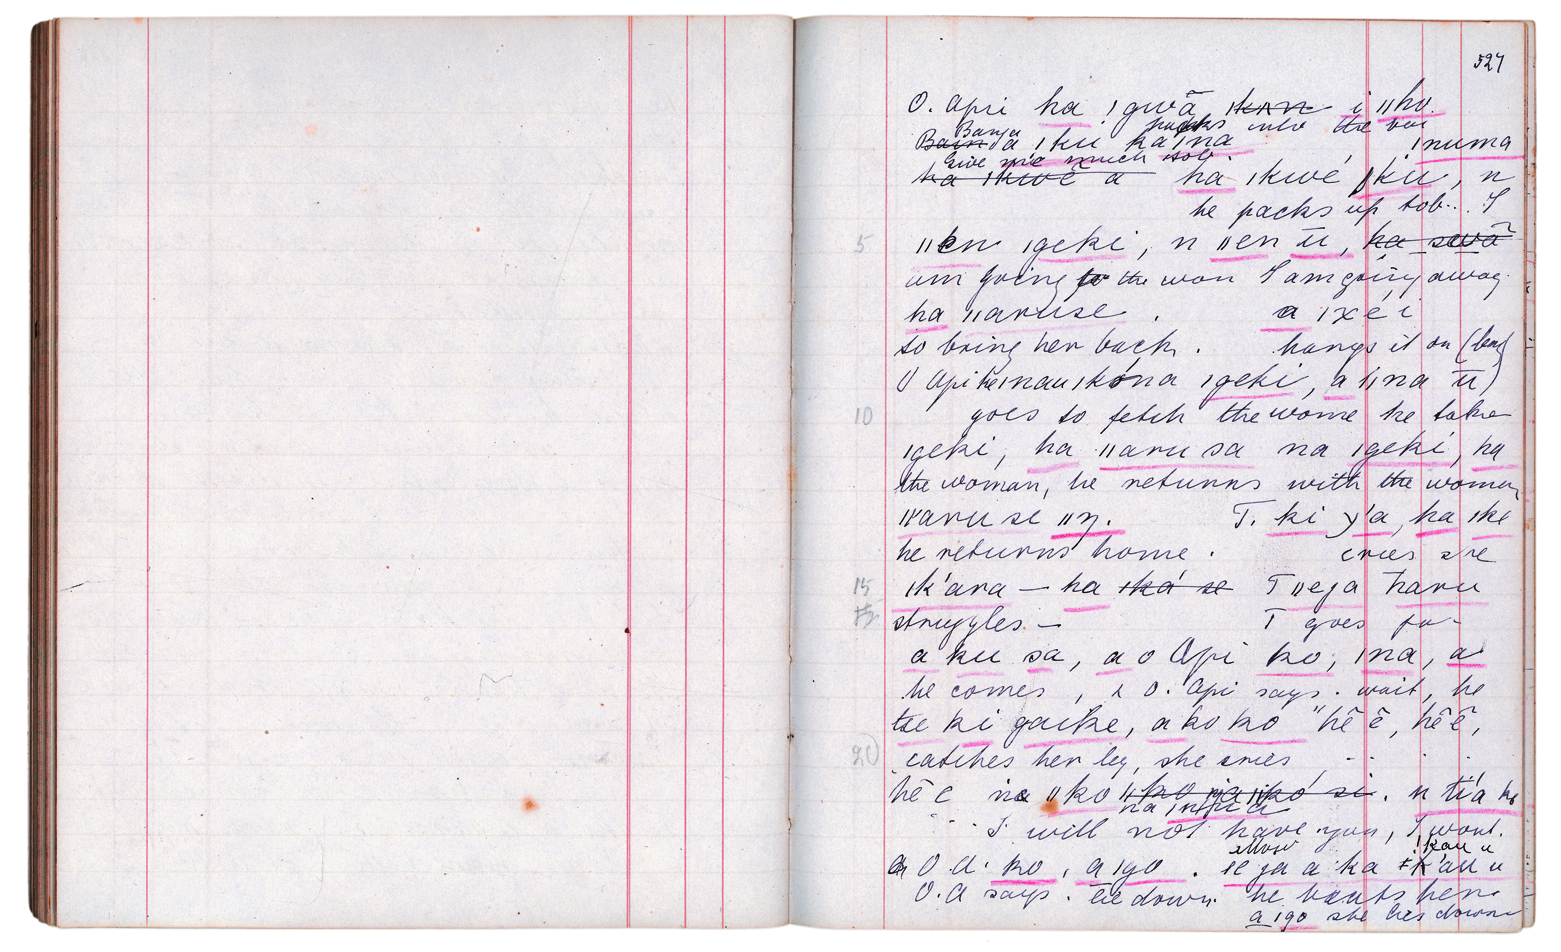 527
O. Api ha ǀgwā ǀkan i ǁho.
Banja packs into the
Bain a ǀku ka ǀna ǀnuma
Give me much tob.
ha ǀkwē a ha ǀkwé ǀku, n
he packs up tob.. I
5 ǁen ǀgeki, n ǁen ū, ha sewā
am going to the wom I am going away.
ha ǁaruse. a ǀxéi
to bring her back. hangs it on (
O Api he ǀnau ǀkóna ǀgeki, a ǁna ū)
10 goes to fetch the wome he take
ǀgeki, ha ǁaru sa na ǀgeki, ha
the woman, he returns with the woman
ǁaru se ǁŋ. T. ki y'a, ha ǀke
he returns home. cries she
15 ǀk'ara — ha ǀká se T ǁeja haru
struggles — T goes fo-
a ku sa, a o Api ko, ǀna, a
he comes, & O. Api says. wait, he
tse ki gaike, a ko ko "hē ē, hē ē,
20 catches her leg, she cries -- . .
hē ē na ǁko ǁko ǀkó si. n tía ko
na
I will not have you, I wont.
ǀkau u
O A. ko, a ǀgo. ǀe ja a ka ǂk'au u
O. A says. lie down. he wants her
a ǀgo she lies down